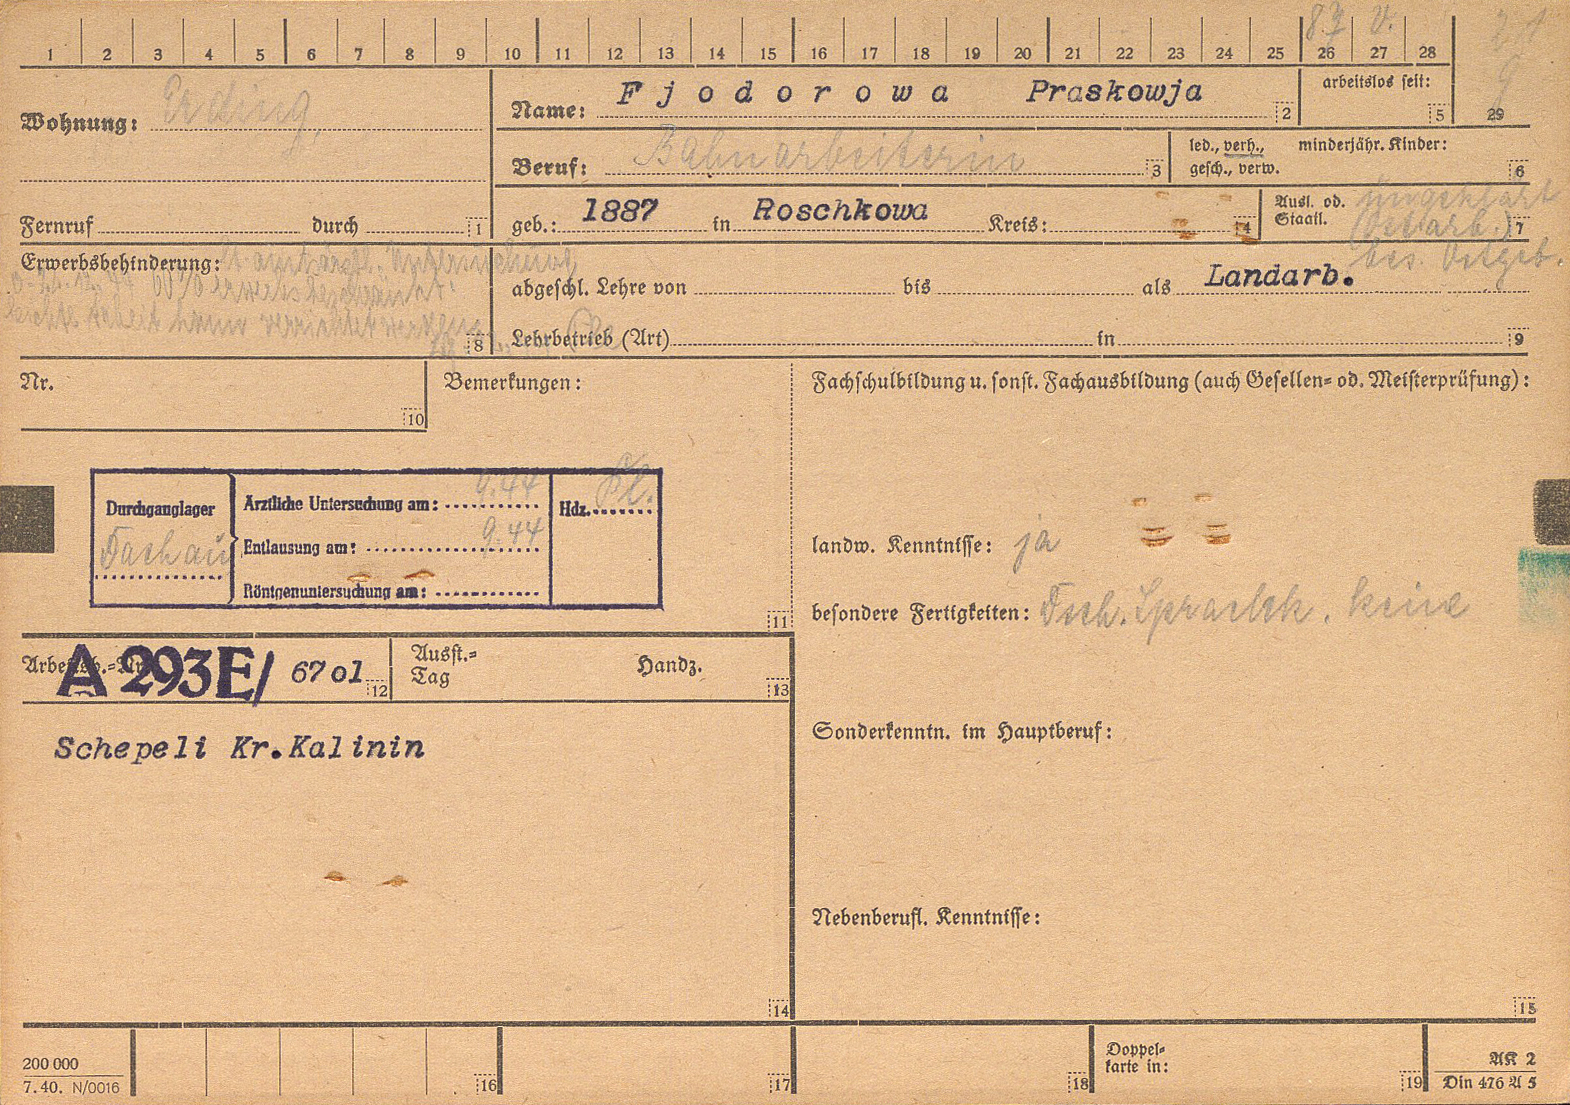 1 2 3 4 5 6 7 8 9 10 11 12 13 14 15 16 17 18 19 20 21 22 23 24 25 26 27 28 29
87 V.
Wohnung: Erding,
Name: Fjodorowa Praskowja 2
arbeitslos seit: 5
Beruf: Bahnarbeiterin 3
led., verh., gesch., verw.
minderjähr. Kinder: 6
Fernruf durch 1
geb.: 1887 in Roschkowa Kreis: 4
Ausl. od. Staatl. ungeklärt 7
(Ostarb.)
bes. Ostgeb.
Erwerbsbehinderung:
lt. amtärztl. Untersuchung
60% erwerbsbeschränkt.
leichte Arbeit kann verrichtet werden
8
abgeschl. Lehre von bis als Landarb.
Lehrbetrieb (Art) in 9
Nr. 10
Bemerkungen:
Fachschulbildung u. sonst. Fachausbildung (auch Gesellen- od. Meisterprüfung):
Durchganglager
Dachau
Ärztliche Untersuchung am: 9.44
Entlausung am: 9.44
Röntgenuntersuchung am:
Hdz.
11
landw. Kenntnisse: ja
besondere Fertigkeiten: keine
Arbeitsb.-Nr. A 293E/ 6701 12
Ausst.-Tag
Handz.
13
Schepeli Kr.Kalinin
Sonderkenntn. im Hauptberuf:
Nebenberufl. Kenntnisse:
14
15
200 000
7.40. N/0016
16
17
18
Doppel-
karte in:
19
AK 2
Din 476 A 5